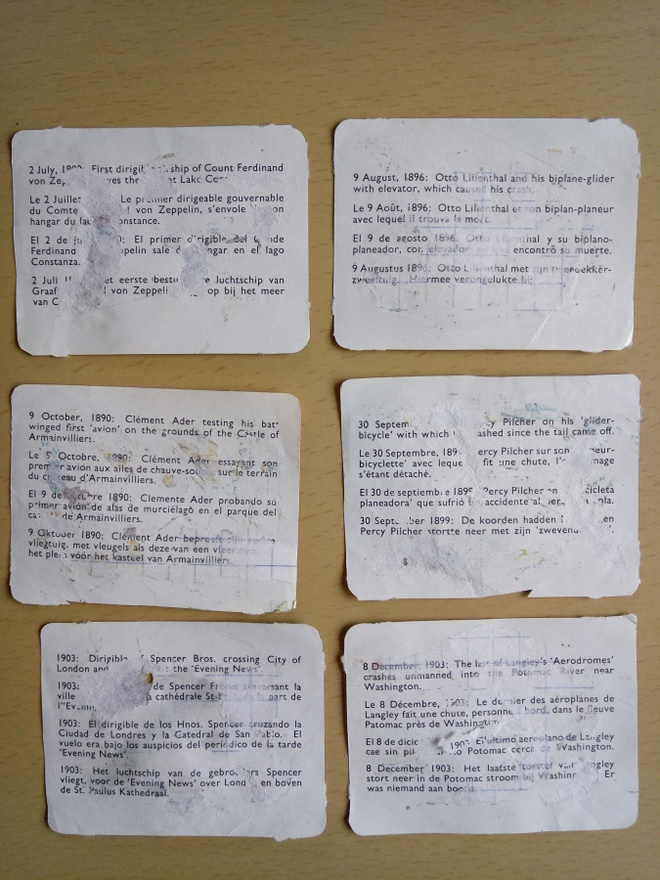 2 July, First dirigi ship of Count Ferdinand
von Zep ves the nt Lake Con
Le 2 Juillet Le premier dirigeable gouvernable
du Comte von Zeppelin, s'envole on
hangar du la onstance.
El 2 de El primer dirigible del nde
Ferdinand ppelin sale de ngar en el lago
Constanza.
2 Juli et eerste bestu re luchtschip van
Graaf von Zeppeli op bij het meer
van C
9 August, 1896: Otto Lilienthal and his biplane-glider
with elevator, which caused his crash.
Le 9 Août, 1896: Otto Lilienthal et son biplan-planeur
avec lequel il trouva la mort.
El 9 de agosto 1896: Otto Lilienthal y su biplano-
planeador, con elevador encontró su muerte.
9 Augustus 1896: Otto Lilienthal met zijn tweedekker-
zweeftuig. Hiermee verongelukte hij.
9 October, 1890: Clément Ader testing his bat-
winged first 'avion' on the grounds of the Castle of
Armainvilliers.
Le 9 Octobre, 1890: Clément Ader essayant son
premier avion aux ailes de chauve-sou sur le terrain
du château d'Armainvilliers.
El 9 de octubre 1890: Clemente Ader probando su
primer avion de alas de murciélago en el parque del
ca de Armainvilliers.
9 Oktober 1890: Clément Ader beproeft zijn eerste
vliegtuig, met vleugels als deze van een vleer
het plein vóór het kasteel van Armainvilliers.
30 Septem cy Pilcher on his 'glider-
bicycle' with which ashed since the tail came off.
Le 30 Septembre, 189 ercy Pilcher sur son neur-
bicyclette' avec leque fit une chute, l' nage
s'étant détaché.
El 30 de septiembre 189 Percy Pilcher en cicleta
planeadora' que sufrió accidente al per la.
30 Sept 1899: De koorden hadden en
Percy Pilcher stortte neer met zijn 'zweven
1903: Dirigible of Spencer Bros. crossing City of
London and the 'Evening News'.
1903: de Spencer Frères traversant la
ville la cathédrale St-P de la part de
l'"Evenin
1903: El dirigible de los Hnos. Spencer cruzando la
Ciudad de Londres y la Catedral de San Pablo. El
vuelo era bajo los auspicios del periódico de la tarde
'Evening News'.
1903: Het luchtschip van de gebroeders Spencer
vliegt, voor de 'Evening News' over Lond en boven
de St. Paulus Kathedraal.
8 December, 1903: The last of Langley's 'Aerodromes'
crashes unmanned into the Potomac River near
Washington.
Le 8 Décembre, 1903: Le dernier des aéroplanes de
Langley fait une chute, personne bord, dans le fleuve
Potomac près de Washington
El 8 de dicie 1903 El último aeroplano de Langley
cae sin pil Potomac cerca de Washington.
8 December 1903: Het laatste toestel van Langley
stort neer in de Potomac stroom bij Washing Er
was niemand aan boord.